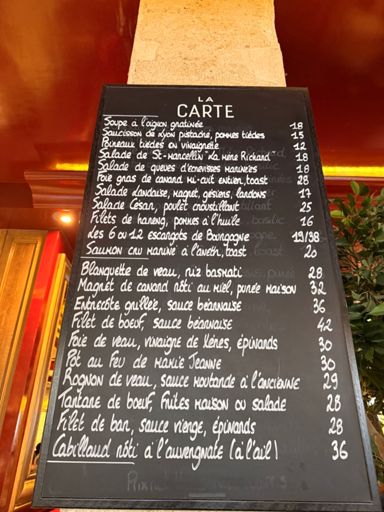 LA
CARTE
Soupe à l'oignon gratinée 18
Saucisson de Lyon pistaché, pommes tièdes 15
Poireaux tièdes en vinaigrette 12
Salade de St-Marcellin "La Mère Richard" 18
Salade de queues d'écrevisses marinées 18
Foie gras de canard mi-cuit entier, toast 28
Salade landaise, magret, gésiers, lardons 17
Salade César, poulet croustillant 25
Filets de hareng, pommes à l'huile 16
Les 6 ou 12 escargots de Bourgogne 19/38
Saumon cru mariné à l'aneth, toast 20
Blanquette de veau, riz basmati 28
Magret de canard rôti au miel, purée maison 32
Entrecôte grillée, sauce béarnaise 36
Filet de bœuf, sauce béarnaise 42
Foie de veau, vinaigre de Xérès, épinards 30
Pôt au Feu de Marie Jeanne 30
Rognon de veau, sauce moutarde à l'ancienne 29
Tartare de bœuf, frites maison ou salade 28
Filet de bar, sauce vierge, épinards 28
Cabillaud rôti à l'auvergnate (à l'ail) 36